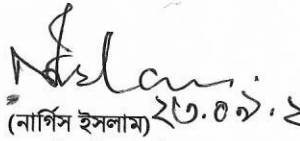 (নার্গিস ইসলাম) ২৩.০৯.২